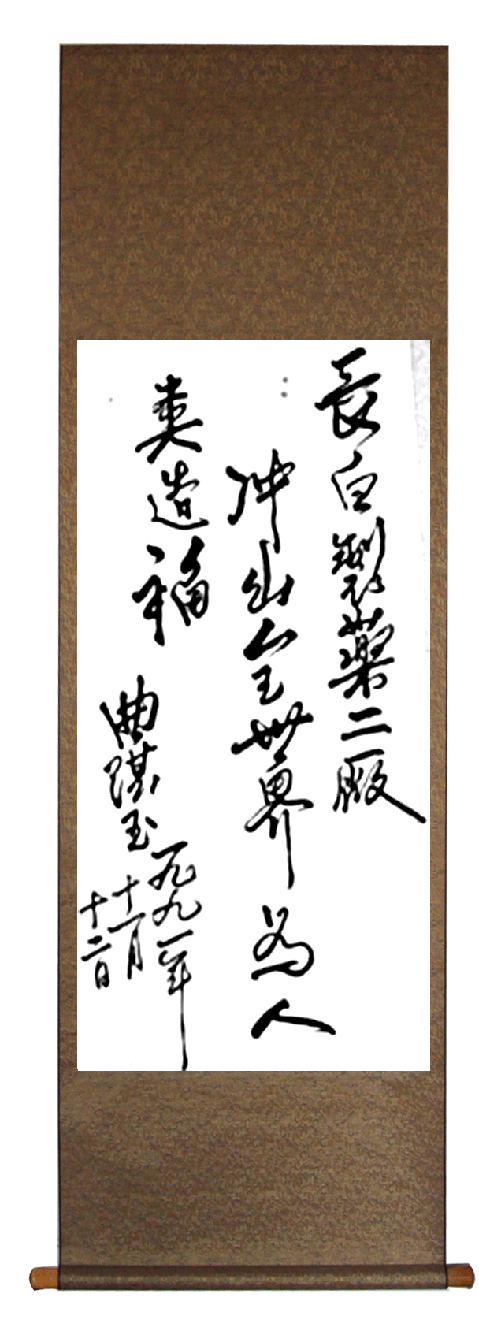 長白製藥二厰
冲出全世界為人
类造福
曲谋玉
一九九一年
十一月
十二日